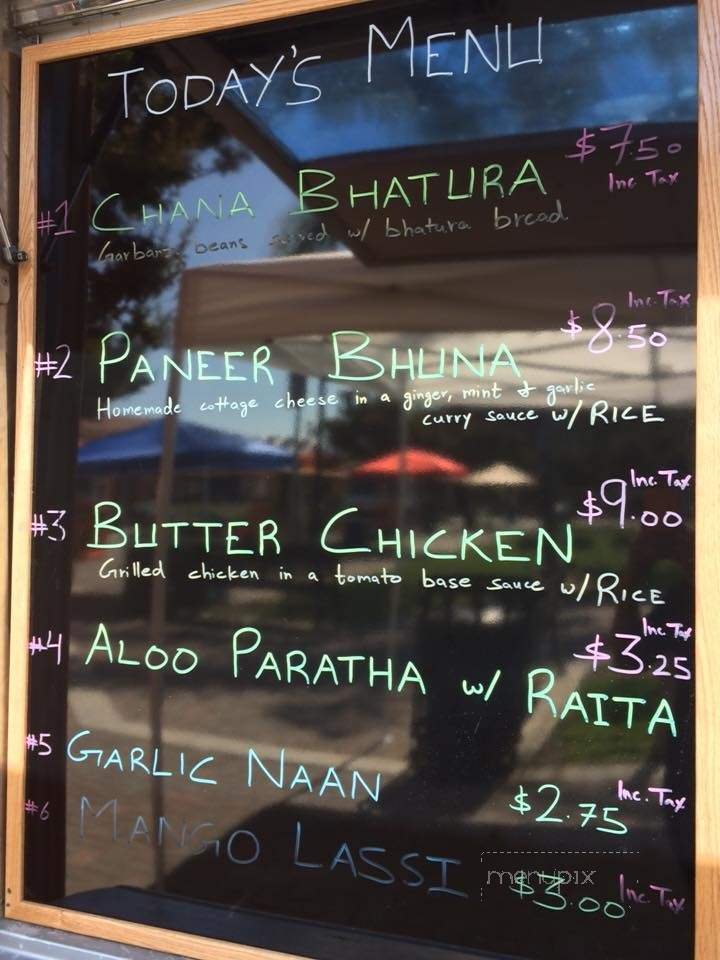 TODAY'S MENU
$7.50
Inc Tax
#1 CHANA BHATURA
Garbanzo beans served w/ bhatura bread
Inc. Tax
$8.50
#2 PANEER BHUNA
Homemade cottage cheese in a ginger, mint & garlic
curry sauce w/ RICE
Inc. Tax
$9.00
#3 BUTTER CHICKEN
Grilled chicken in a tomato base sauce w/ RICE
Inc. Tax
$3.25
#4 ALOO PARATHA w/ RAITA
#5 GARLIC NAAN
$2.75 Inc. Tax
#6 MANGO LASSI
$3.00 Inc. Tax
menupix